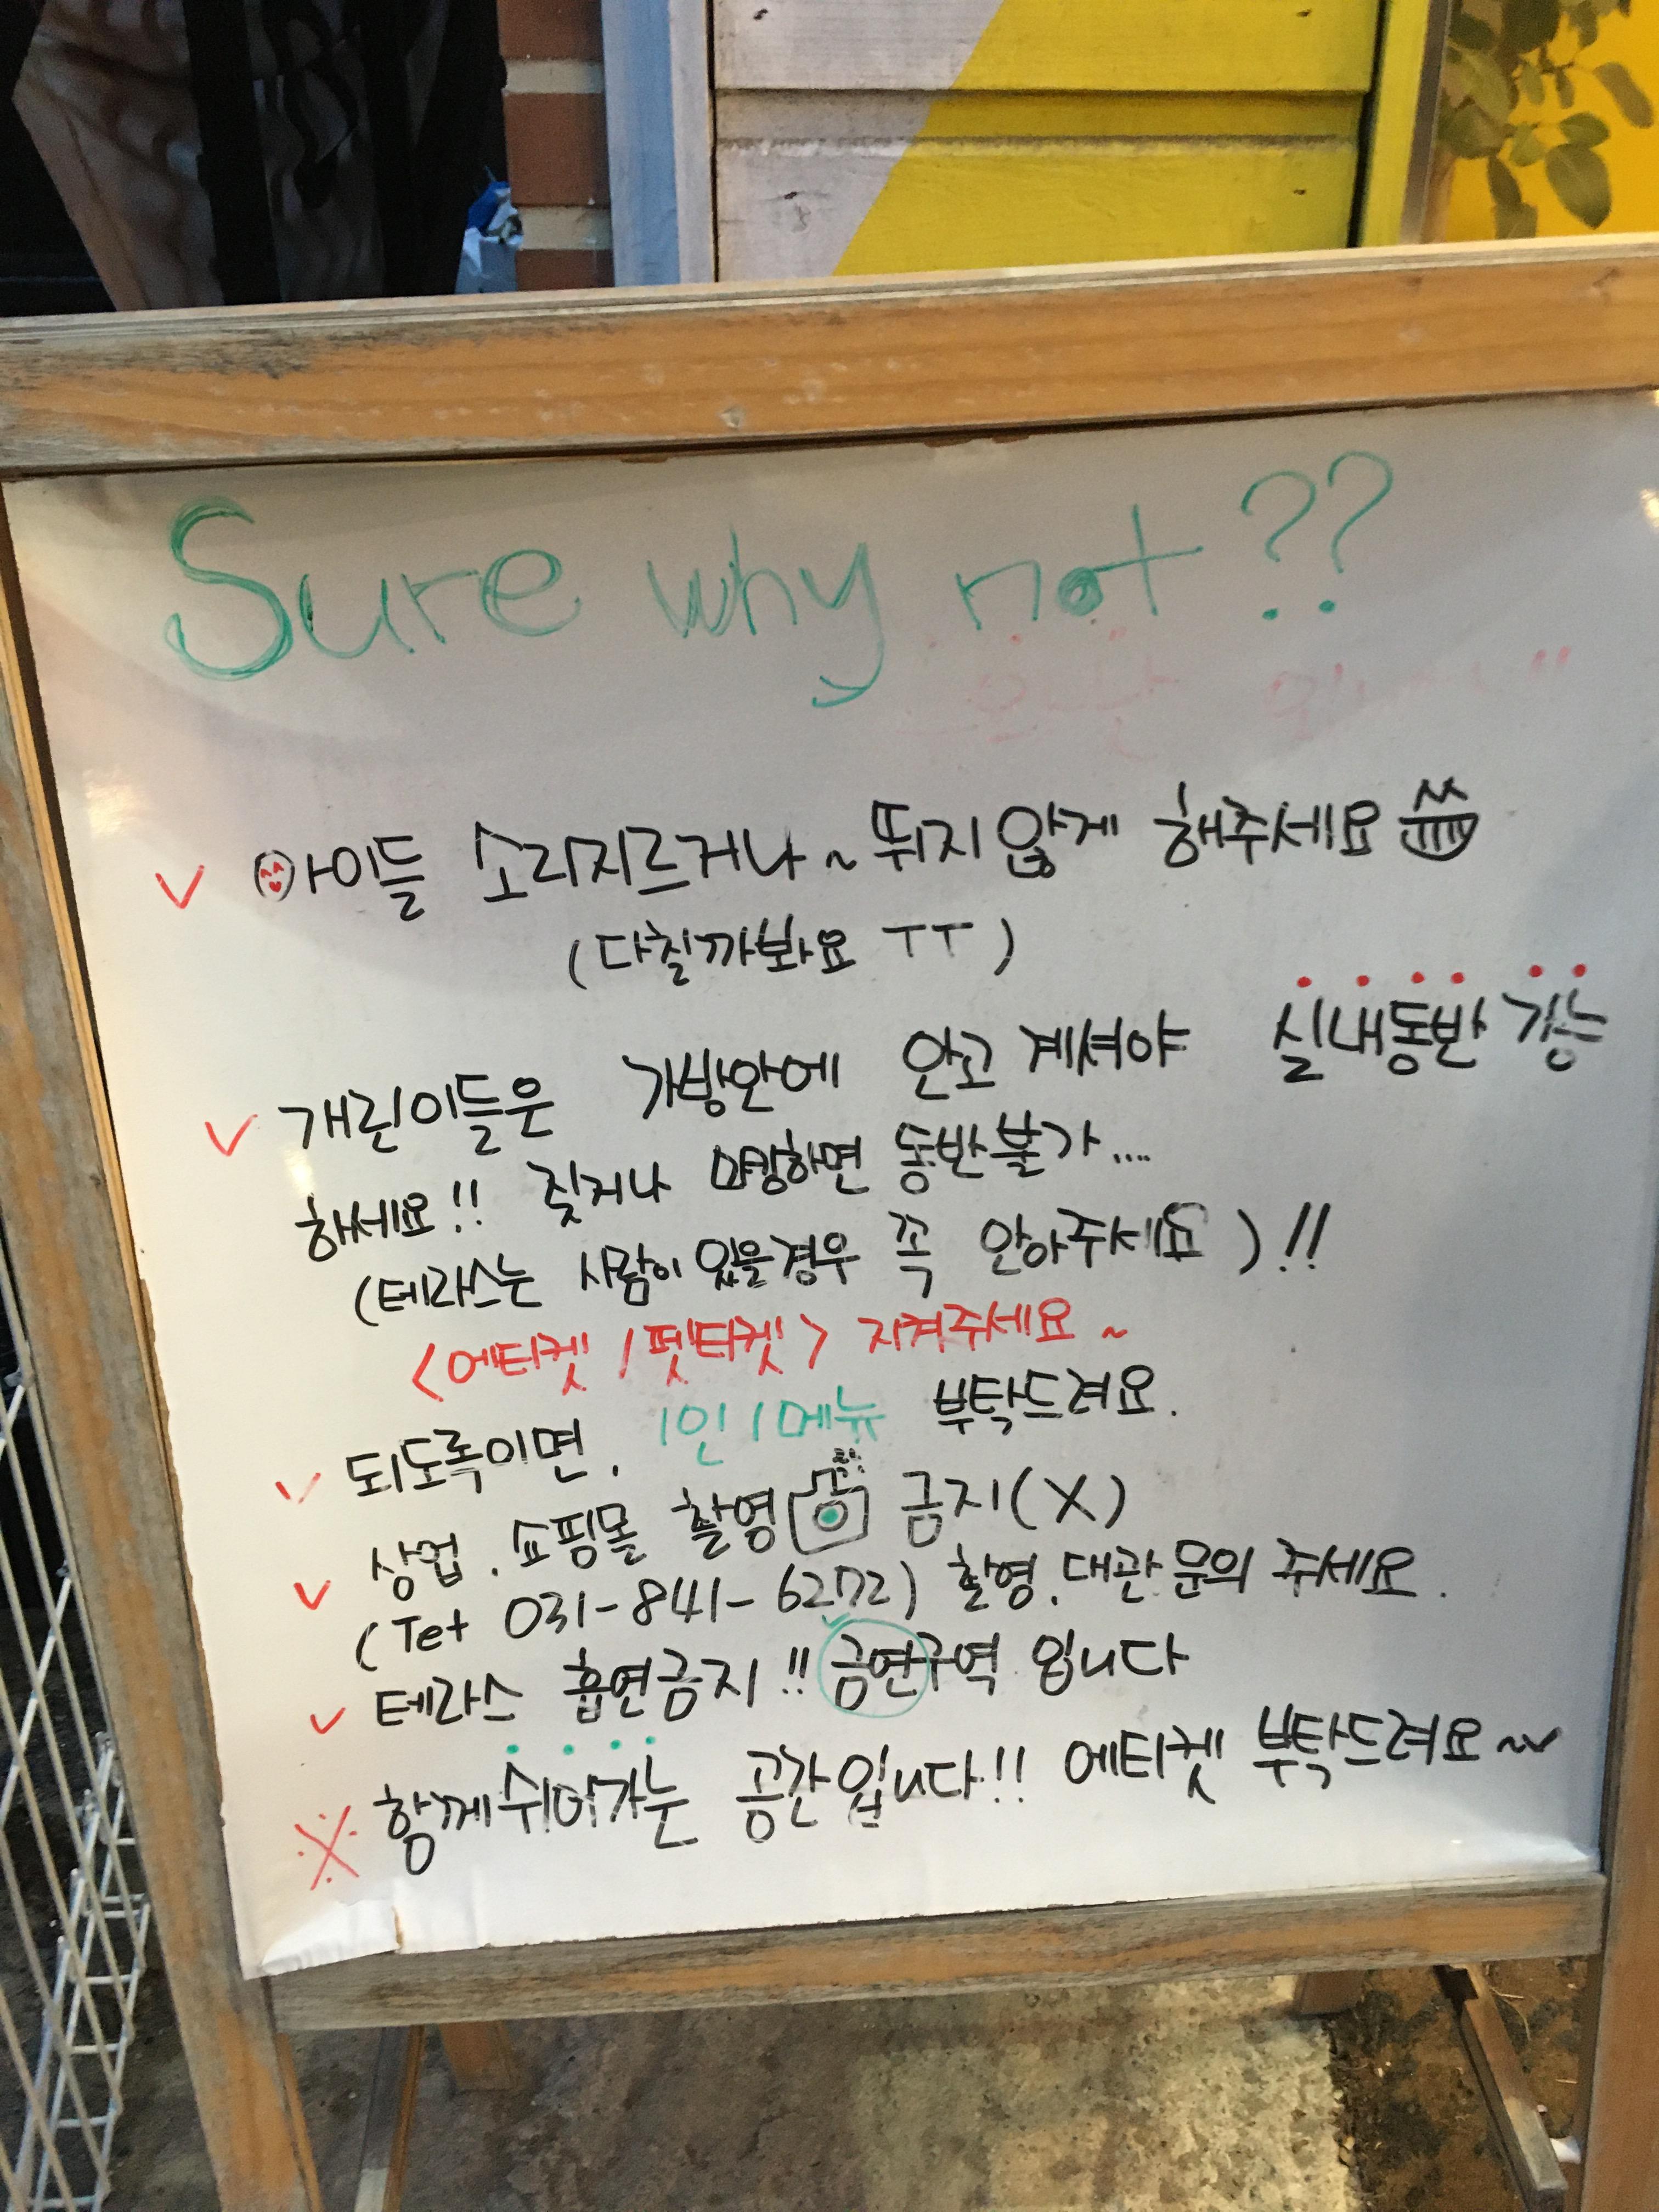 Sure why not??
✓ 아이들 소리지르거나~ 뛰지않게 해주세요
(다칠까봐요 ㅜㅜ)
✓ 개린이들은 가방안에 안고 계셔야 실내동반 가능
하세요!! 짖거나 마킹하면 동반불가....
(테라스는 사람이 있을경우 꼭 안아주세요)!!
<에티켓/펫티켓> 지켜주세요~
✓ 되도록이면. 1인1메뉴 부탁드려요.
✓ 상업. 쇼핑몰 촬영 금지(X)
(Tel 031-841-6272) 촬영.대관문의 주세요.
✓ 테라스 흡연금지!! 금연구역 입니다
※ 함께쉬어가는 공간입니다!! 에티켓 부탁드려요~